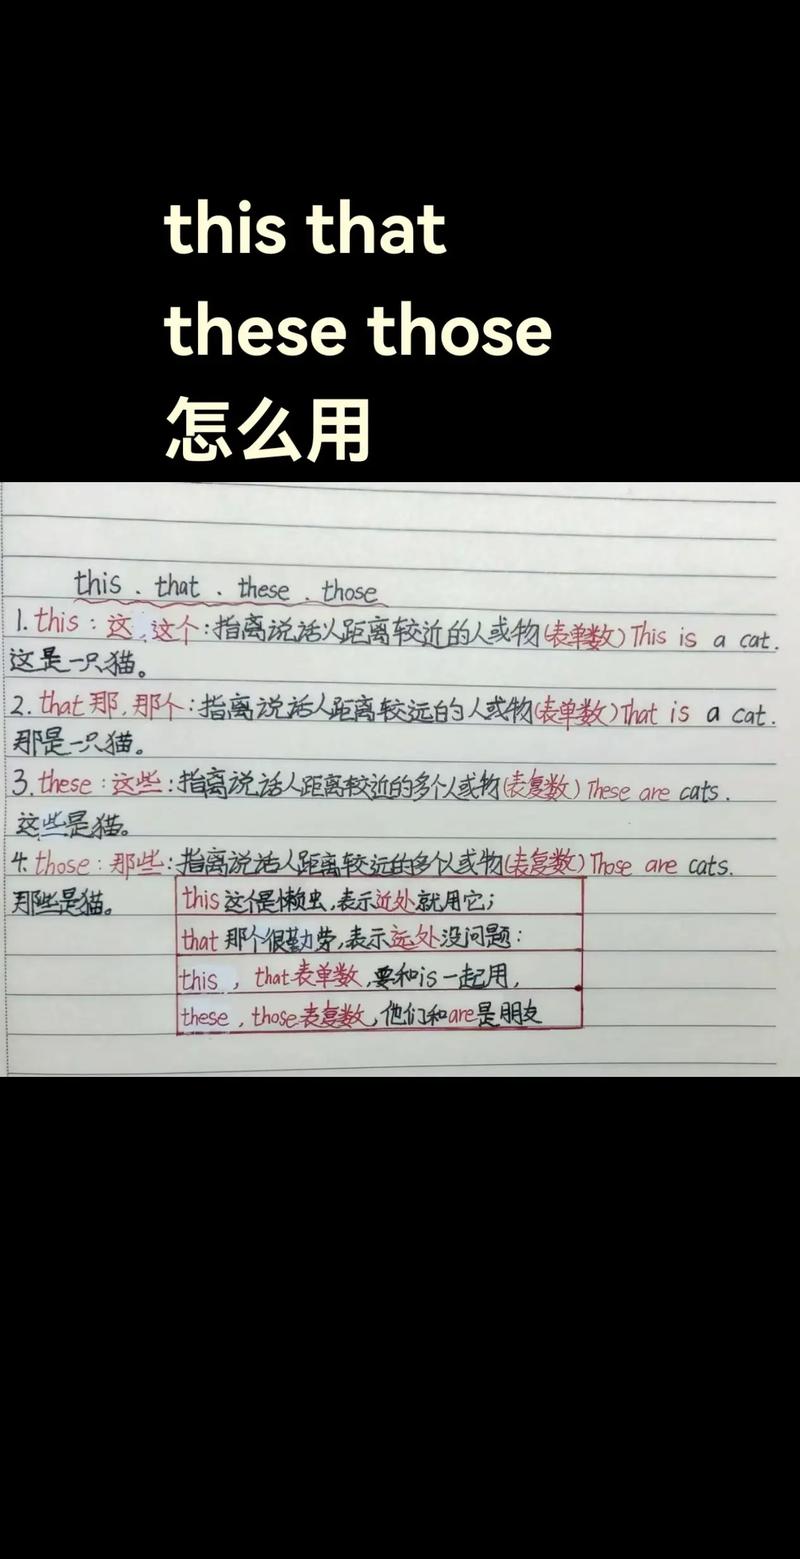 this that
these those
怎么用
this . that . these . those
1. this：这，这个：指离说话人距离较近的人或物(表单数) This is a cat.
这是一只猫。
2. that 那，那个：指离说话人距离较远的人或物(表单数) That is a cat.
那是一只猫。
3. these：这些：指离说话人距离较近的多个人或物(表复数) These are cats.
这些是猫。
4. those：那些：指离说话人距离较远的多个人或物(表复数) Those are cats.
那些是猫。
this 这个是懒虫,表示近处就用它;
that 那个很勤劳,表示远处没问题:
this , that 表单数,要和is一起用,
these , those 表复数,他们和are是朋友